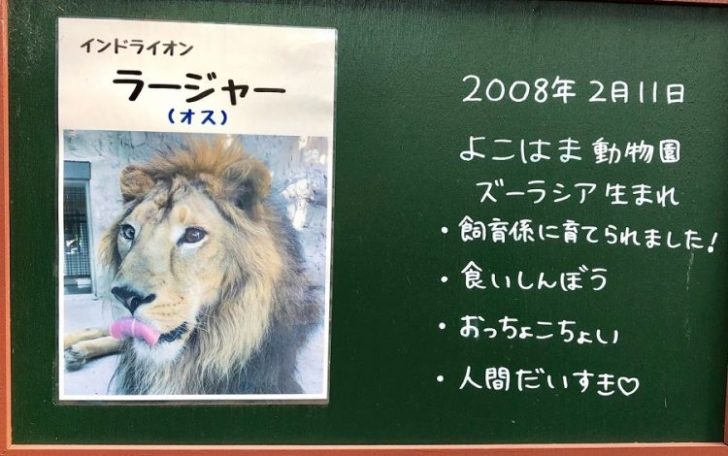 インドライオン
ラージャー
(オス)
2008年 2月11日
よこはま動物園
ズーラシア生まれ
・飼育係に育てられました!
・食いしんぼう
・おっちょこちょい
・人間だいすき♡